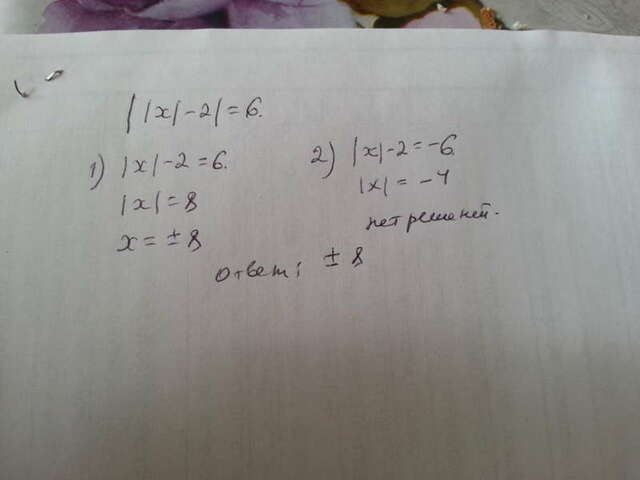 ||x|-2|=6.
1) |x|-2=6.
|x|=8
x=±8
2) |x|-2=-6.
|x|=-4
нет решений.
ответ: ±8